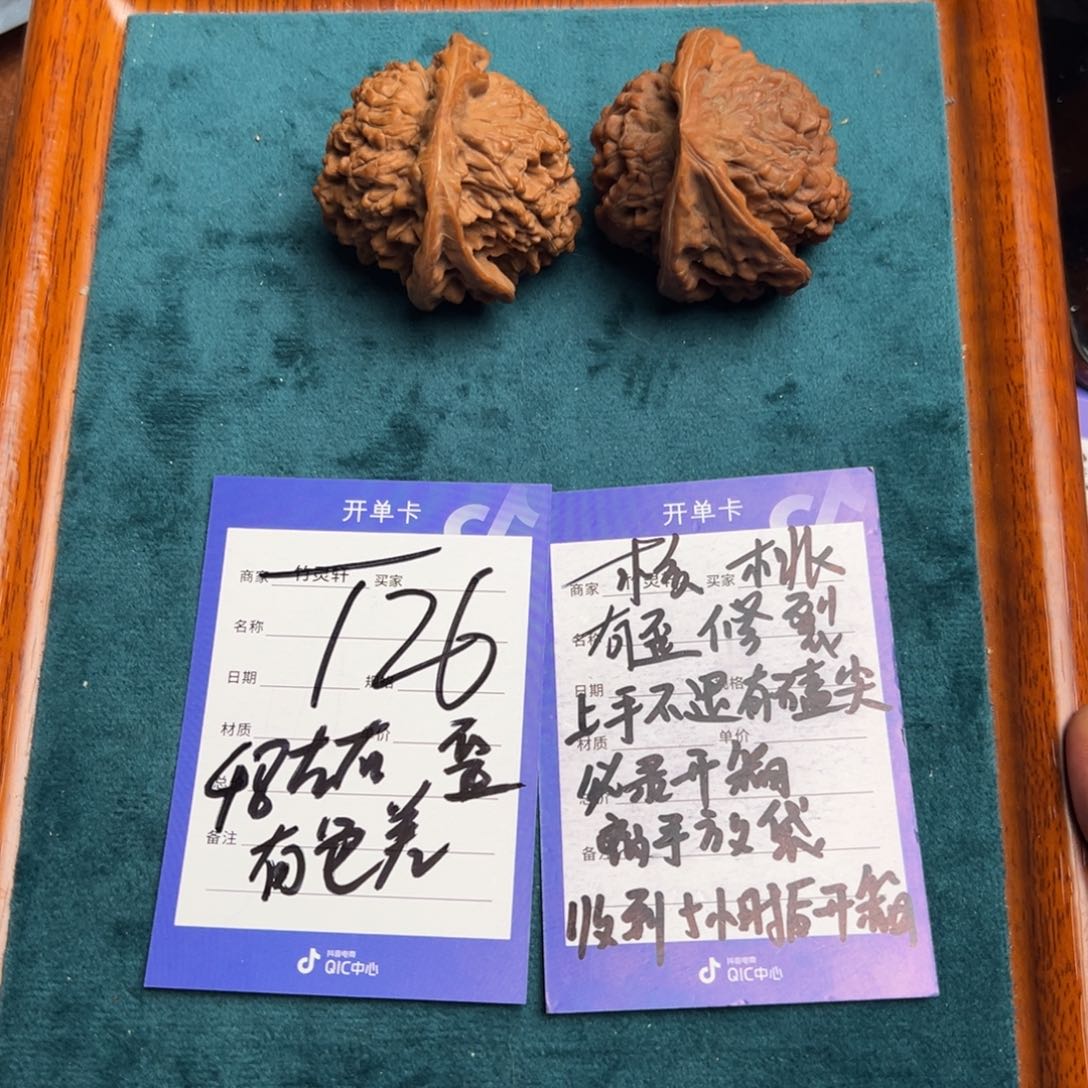 开单卡
商家 竹灵轩 买家
126
名称
日期 规格
材质
48左右 歪
备注
有色差
抖音电商
QIC中心
开单卡
商家 买家
核桃
名称
有歪修裂
日期 规格
上手不退有磕尖
材质 单价
必录开箱
备注
收到 小时后开箱
抖音电商
QIC中心